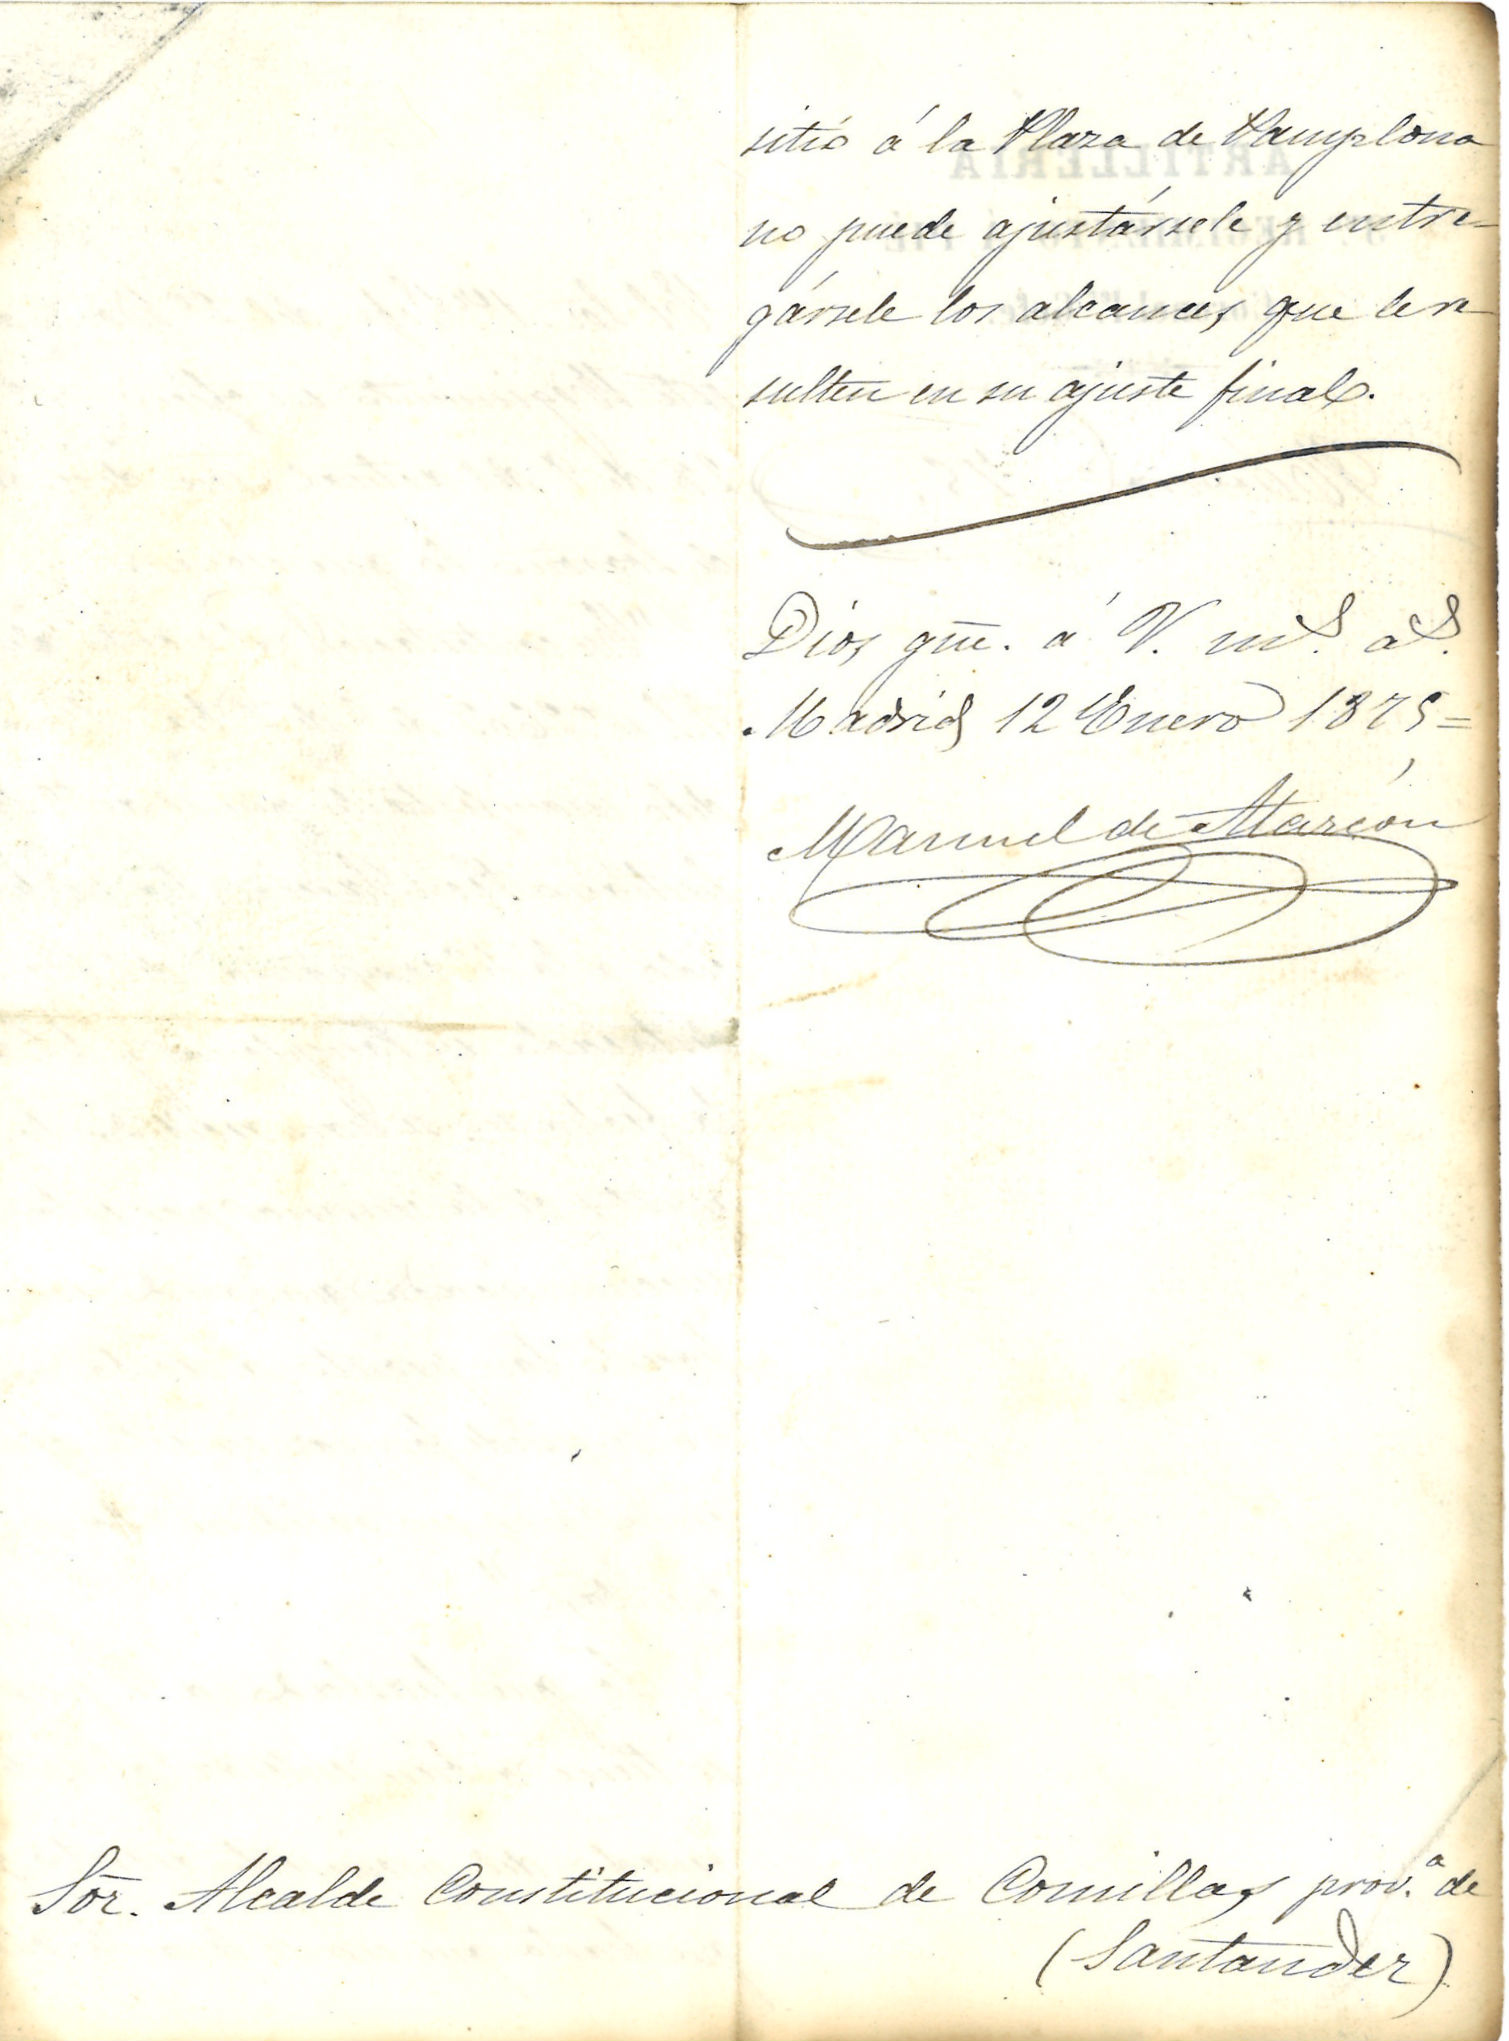 sitio á la Plaza de Pamplona
no puede ajustársele y entre-
gársele los alcances que le re-
sulten en su ajuste final.
Dios gūe. á V. mˢ. aˢ.
Madrid 12 Enero 1875=
Manuel de Alarcón
Sōr. Alcalde Constitucional de Comillas prov.ª de
(Santander)